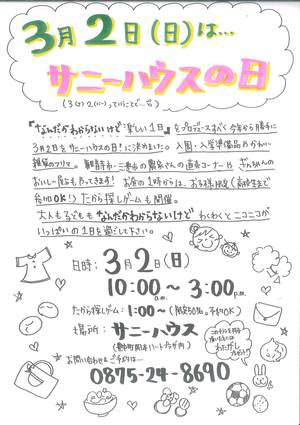 3月2日(日)は...
サニーハウスの日
『なんだかわからないけど楽しい1日』
をプロデュースすべく今年から勝手に
3月2日をサニーハウスの日!に決めました。入園・入学準備品やかわいい
雑貨のフリマ。観音寺市・三豊市の農家さんの直売コーナーや
おいしい屋台もやってきます! お昼の1時からは、お子様限定(高校生まで
参加OK!)たから探しゲームも開催。
大人も子どももなんだかわからないけどわくわくとニコニコが
いっぱいの1日を過ごして下さい。
日時: 3月2日(日)
10:00a.m~3:00p.m.
たから探しゲーム: 1:00~(限定50名。予約OK)
場所: サニーハウス
お問い合わせ&ご予約は...
0875-24-8690
このチラシを
わたがし
プレゼント!